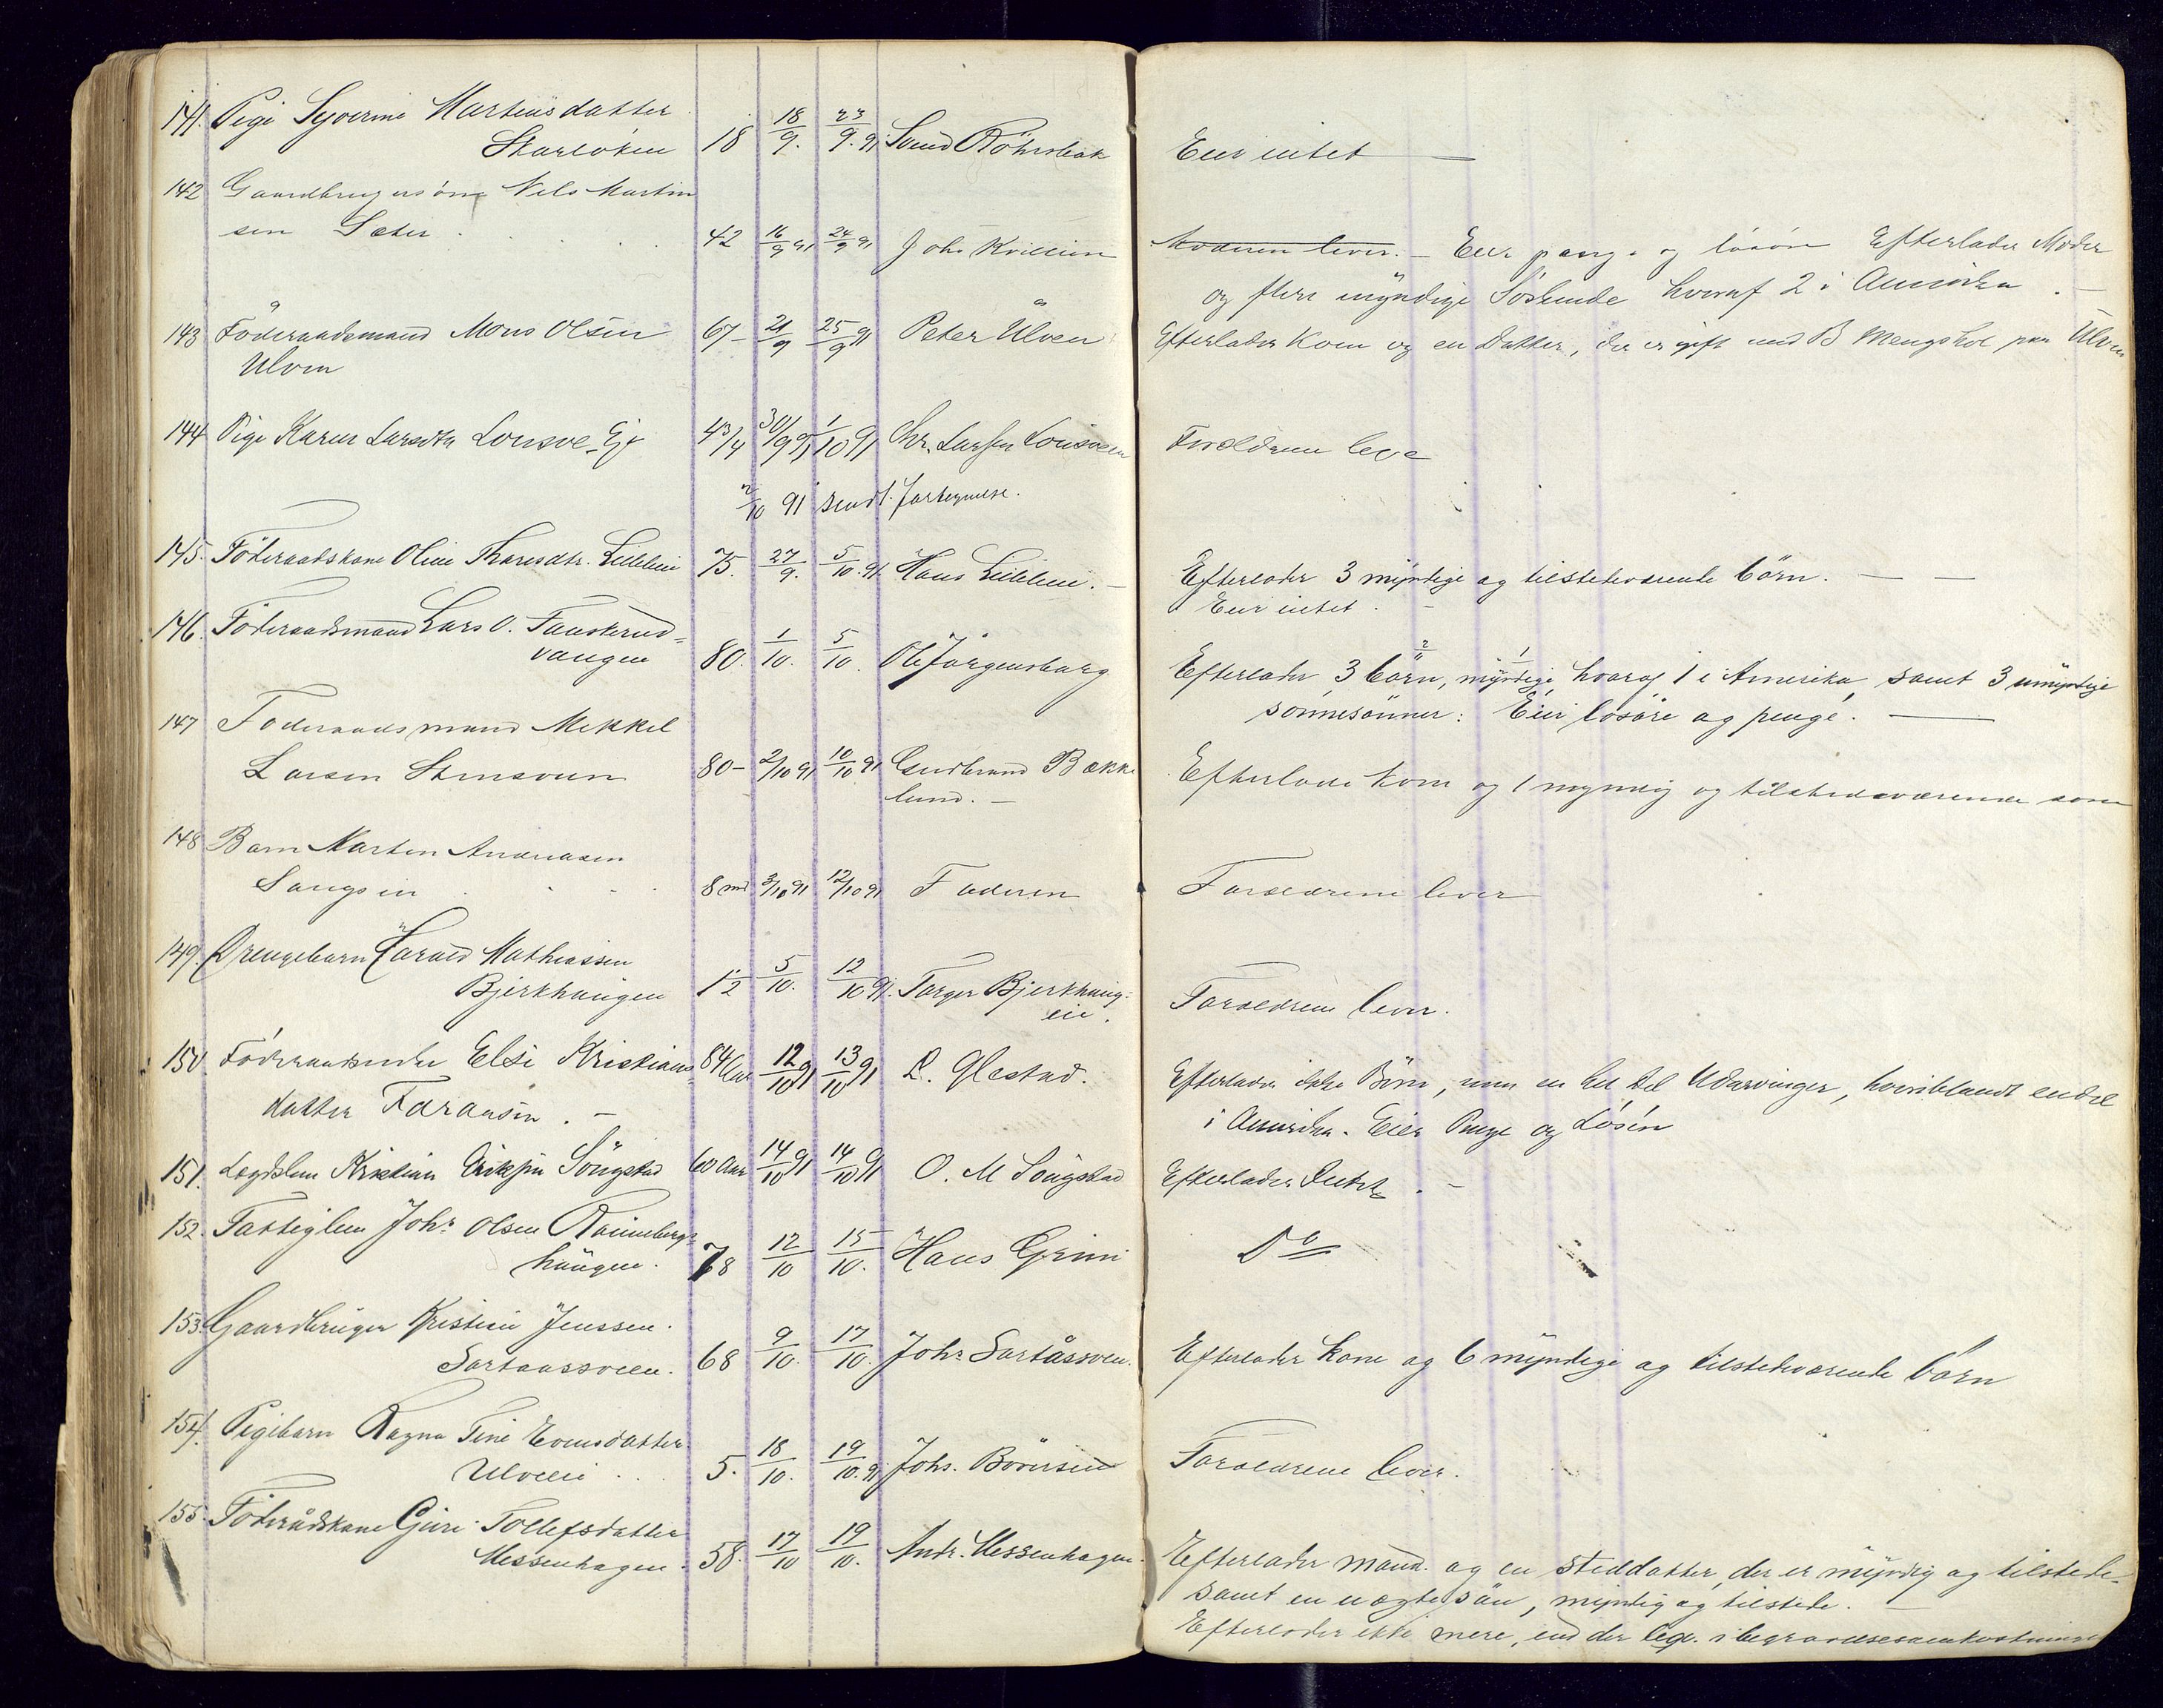 141. Pige Syverine Martinsdatter
Skarløken 18 18/9. 23/9. 91 Svend Röhrsbak Eier intet —
142 Gaardbrugersön Nils Martin
sen Sæter . . . 42 16/9 91 24/9 91 Johs Kvilien Moderen lever. — Eier peng. og løsøre Efterlader Moder
og flere myndige Söskende hvoraf 2 i Amerika . —
143 Föderaadsmand Mons Olsen 67 — 21/9 25/9 91 Peter Ulven Efterlader Kone og en Datter, der er gift med B Mengshol paa Ulven
Ulven
144 Pige Karen Larsdtr Lonsve. Ej 4 3/4 30/9 91 1/10 91 Chr. Larsen Lonsveen Forældrene leve
2/10 91 sendt fortegnelse.
145. Föderaadskone Oline Thoresdtr. Lillelien 75. 27/9. 5/10. 91 Hans Lillelien. — Efterlader 3 myndige og tilstedeværende börn. — —
Eier intet . —
146. Föderaadsmand Lars O. Fauskerud=
vangen 80. 1/10. 5/10. Ole Jörgensborg Efterlader 3 börn, myndige, hvoraf 1 i Amerika, samt 3 umyndige
sönnesönner: Eier lösöre og penge. —
147 Föderaadsmand Mekkel
Larsen Stensveen 80 — 2/10 91 10/10 91 Gudbrand Bække
lund. — Efterlader kone og 1 myndig og tilstedeværende sønn
148 Barn Martin Andreasen
Sangsen . . . 8 md 3/10 91 12/10 91 Faderen Foreldrene lever
149. Drengebarn Harald Mathiassen
Bjerkhaugen 1 1/2 5/10. 12/10 91. Torger Bjerkhaug=
eie. Foreldrene lever.
150 Föderaadsenke Elsi Kristians= 84 Aar 12/10 91 13/10 91 L. Glestad. Efterlader ikke Börn, men en hel del Udarvinger, hvoriblandt endel
datter Faraasen . — i Amerika. Eier Penge og Lösöre
151. Lægdslem Kristian Eriksen Söugstad 60 Aar 14/10 91 14/10 91 O. M Söugstad Efterlader Intet . —
152. Fattiglem Johs Olsen Rönneberg=
haugen. 78 12/10 15/10. Hans Grini Do
153. Gaardbruger Kristian Jenssen.
Sartaasveen. 68 9/10. 17/10. Johs Sartåsveen. Efterlader kone og 6 myndige og tilstedeværende börn
154. Pigebarn Ragna Tine Evensdatter
Ulvelie . . . 5. 18/10. 19/10. 91 Johs. Börresen Foreldrene lever.
155. Föderådskone Guri Tollefsdatter
Messenhagen . 58. 17/10 19/10. Andr. Messenhagen. Efterlader mand. og en steddatter, der er myndig og tilstede.
samt en uægte sön, myndig og tilstede. —
Efterlader ikke mere, end der lige. i begravelsesomkostninger